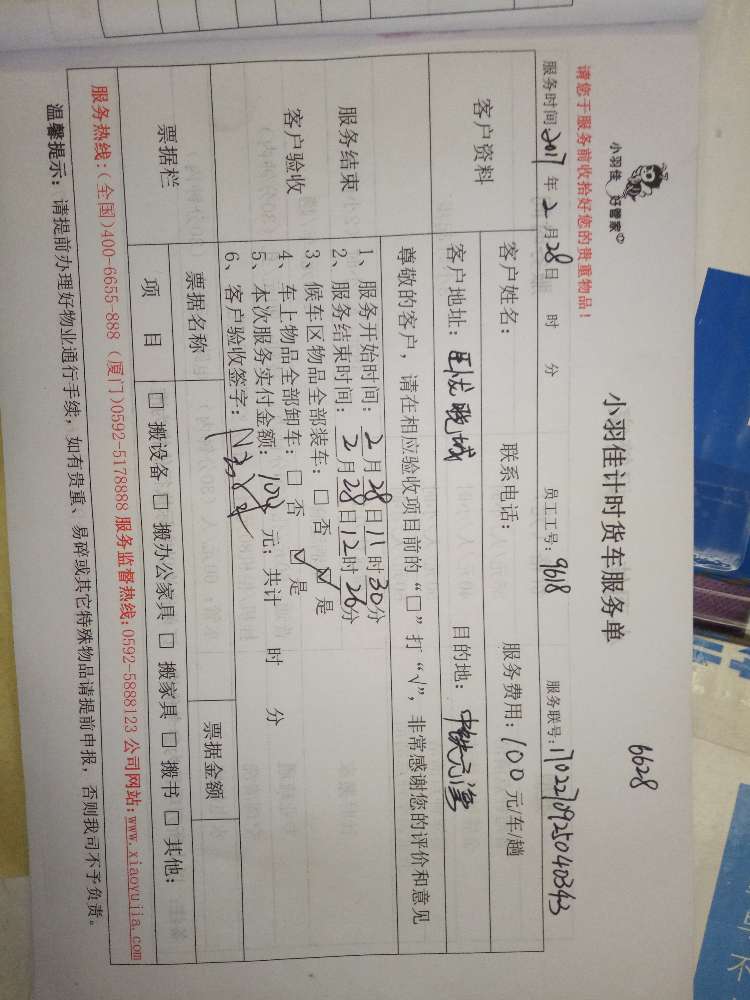 6628
小羽佳 好管家
小羽佳计时货车服务单
请您于服务前收拾好您的贵重物品！
服务时间 2017 年 2 月 28 日 时 分 员工工号：9618 服务联号：1702270925040343
客户资料
客户姓名： 联系电话： 服务费用：100 元/车/趟
客户地址： 晚城 目的地： 中铁元湾
尊敬的客户，请在相应验收项目前的“□”打“√”，非常感谢您的评价和意见
服务结束
客户验收
1、服务开始时间：2月28日11时30分
2、服务结束时间：2月28日12时26分
3、候车区物品全部装车：□ 否 ☑ 是
4、车上物品全部卸车：□ 否 ☑ 是
5、本次服务实付金额： 元；共计 时 分
6、客户验收签字：
票据栏
票据名称 票据金额
项 目 □ 搬设备 □ 搬办公家具 □ 搬家具 □ 搬书 □ 其他：
服务热线：(全国)400-6655-888 (厦门)0592-5178888 服务监督热线：0592-5888123 公司网站：www.xiaoyujia.com
温馨提示：请提前办理好物业通行手续，如有贵重、易碎或其它特殊物品请提前申报，否则我司不予负责。
不